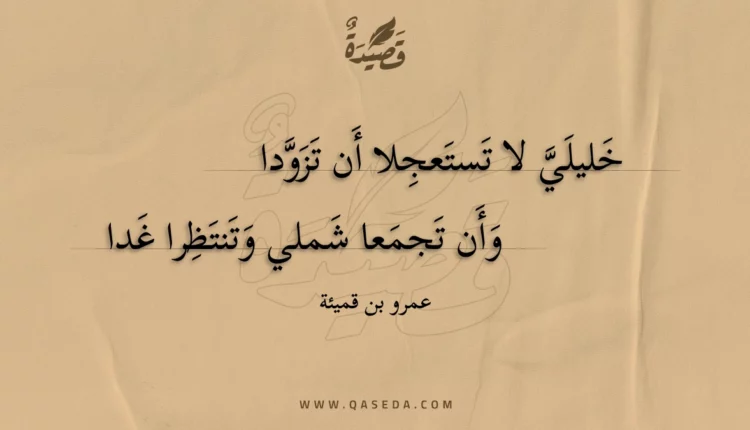 قَصِيدَةٌ
خَليلَيَّ لا تَستَعجِلا أَن تَزَوَّدا
وَأَن تَجمَعا شَملي وَتَنتَظِرا غَدا
عمرو بن قميئة
WWW.QASEDA.COM